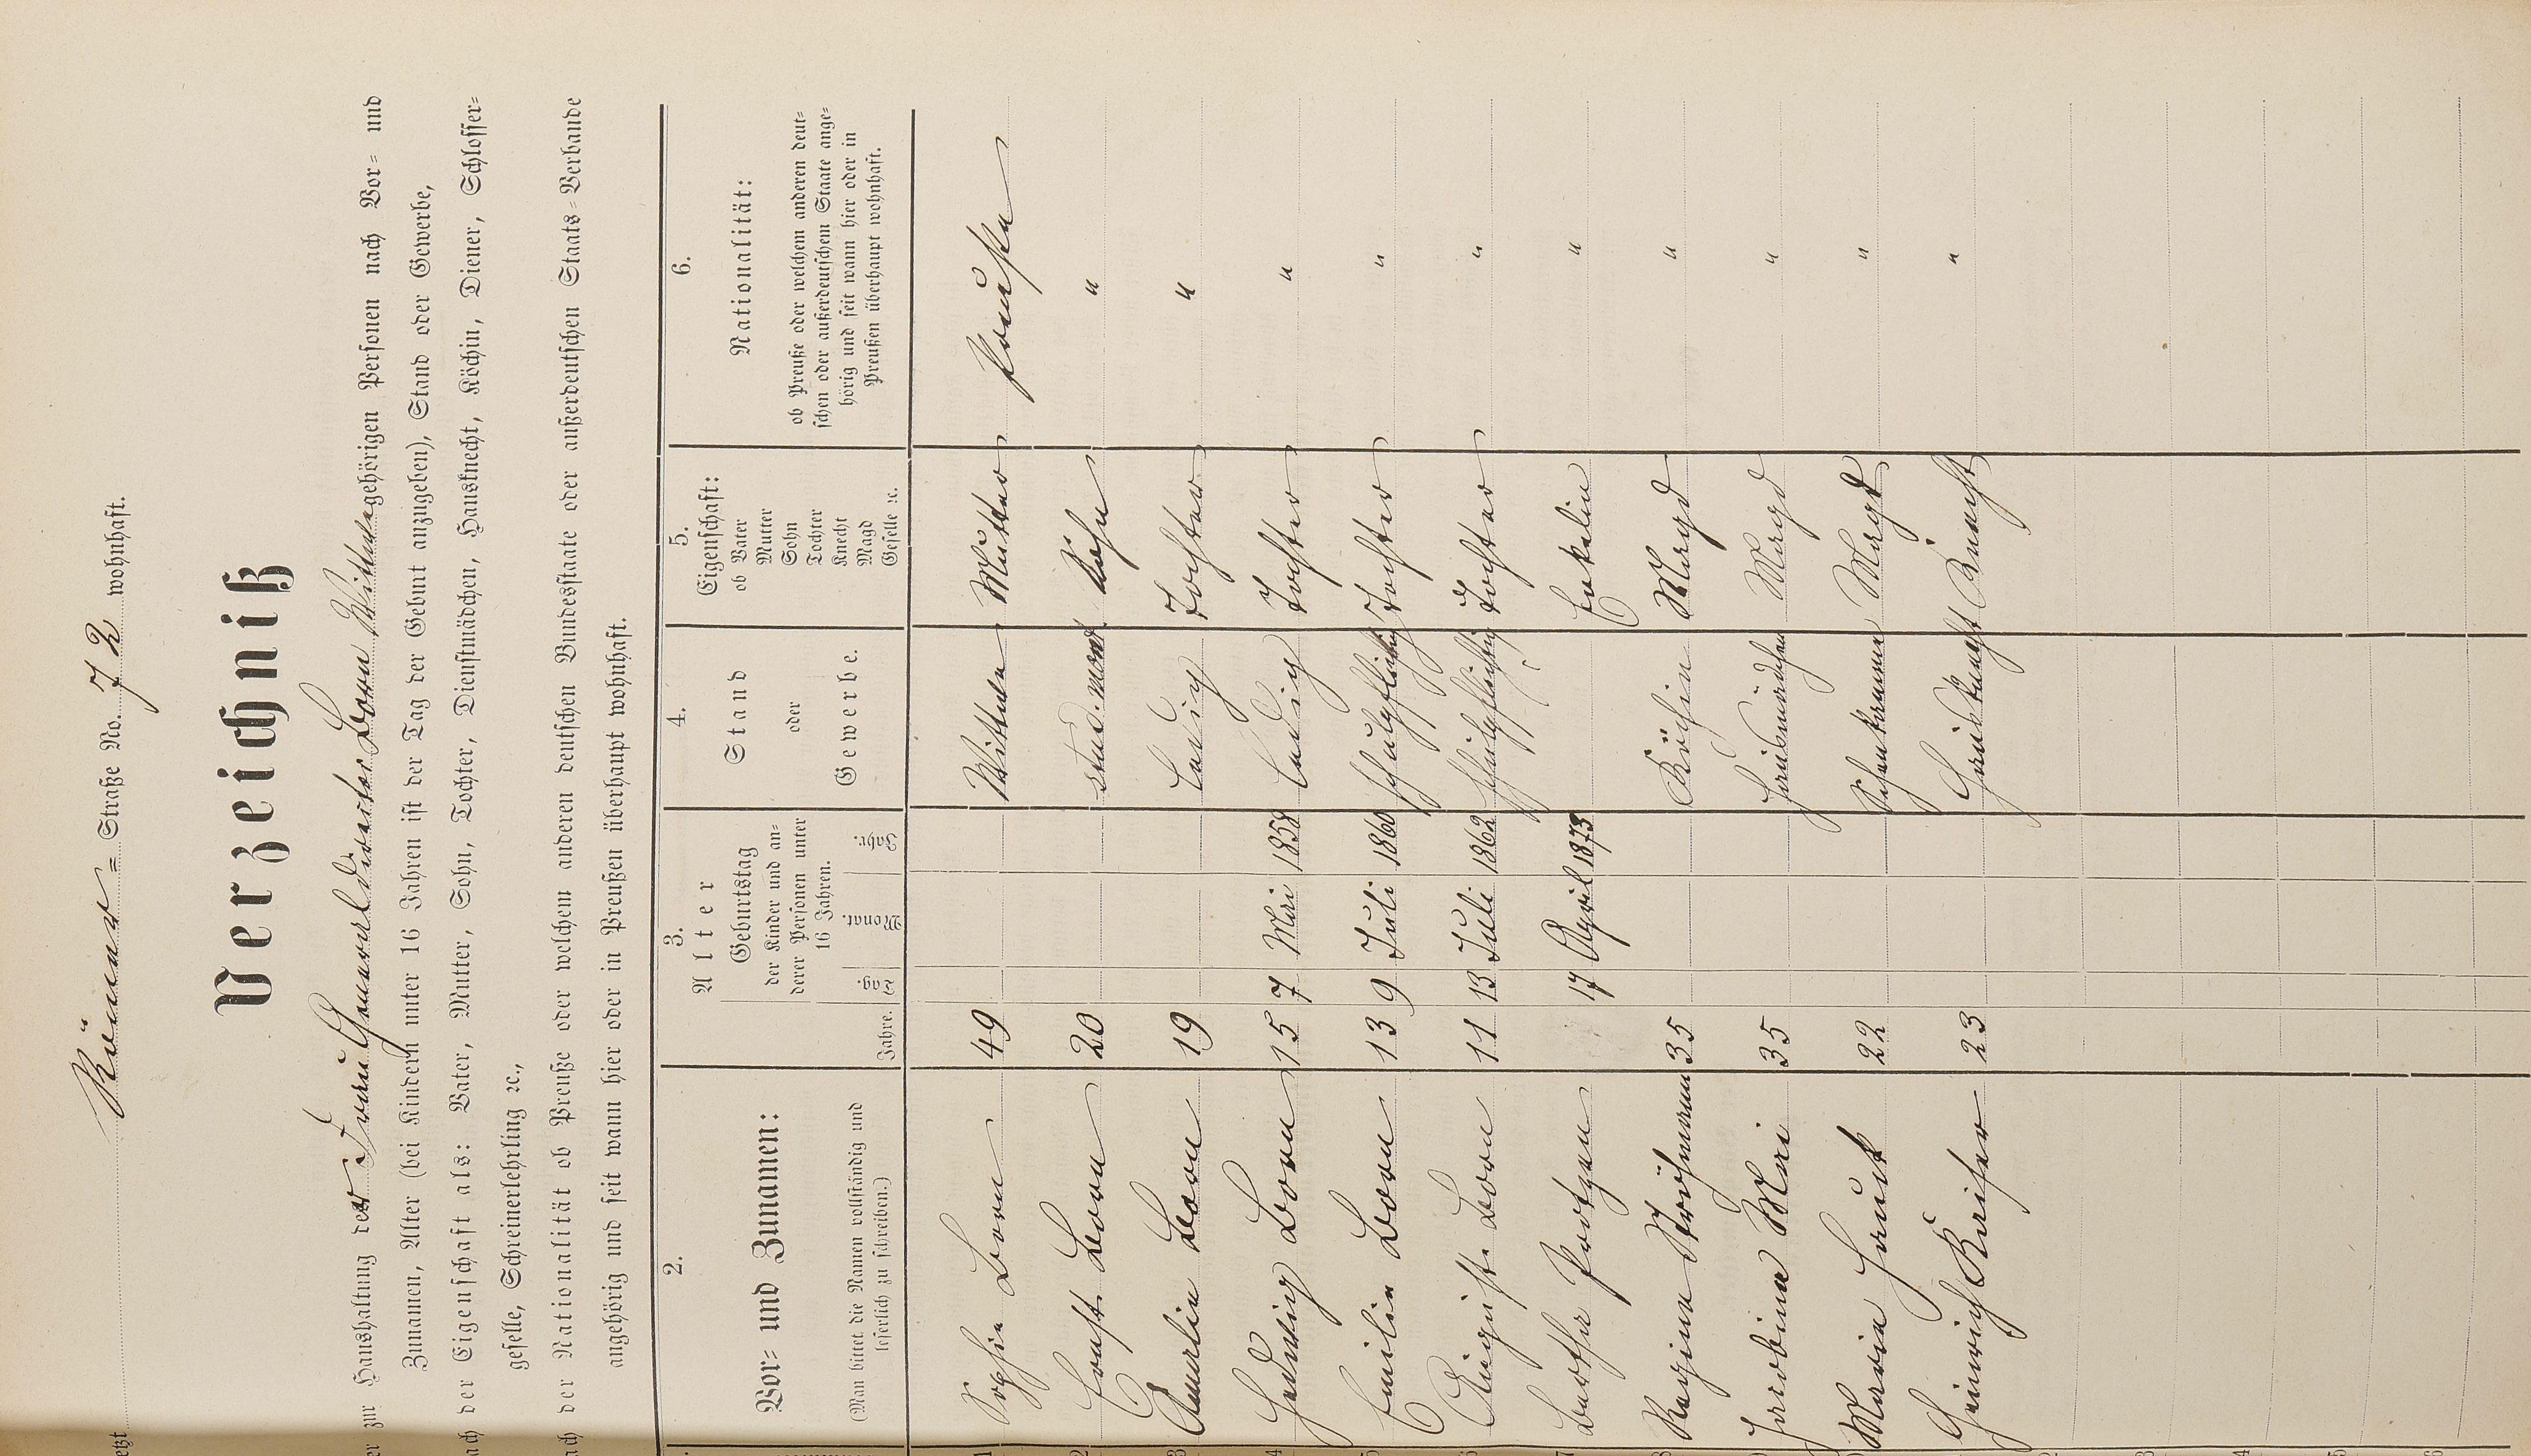 etzt Römer = Straße No. 72 wohnhaft.
Verzeichniß
er zur Haushaltung der Frau Generaldirector Born Wittwe gehörigen Personen nach Vor= und
Zunamen, Alter (bei Kindern unter 16 Jahren ist der Tag der Geburt anzugeben), Stand oder Gewerbe,
ach der Eigenschaft als: Vater, Mutter, Sohn, Tochter, Dienstmädchen, Hausknecht, Köchin, Diener, Schlosser=
geselle, Schreinerlehrling ꝛc.,
ach der Nationalität ob Preuße oder welchem anderen deutschen Bundesstaate oder außerdeutschen Staats=Verbande
angehörig und seit wann hier oder in Preußen überhaupt wohnhaft.
2. 3. 4. 5. 6.
Vor= und Zunamen: Alter Stand oder Gewerbe. Eigenschaft: Nationalität:
(Man bittet die Namen vollständig und
leserlich zu schreiben.)
Jahre.
Geburtstag
der Kinder und an=
derer Personen unter
16 Jahren.
Tag. Monat. Jahr.
ob Vater
Mutter
Sohn
Tochter
Knecht
Magd
Geselle ꝛc.
ob Preuße oder welchem anderen deut=
schen oder außerdeutschem Staate ange=
hörig und seit wann hier oder in
Preußen überhaupt wohnhaft.
1 Sophie Born 49 Wittwe Mutter Preuße
2 Ernst Born 20 stud. mont. Sohn "
3 Amalie Born 19 Ledig Tochter "
4 Hedwig Born 15 7 Mai 1858 Ledig Tochter "
5 Emilie Born 13 9 Juli 1860 schulpflichtig Tochter "
6 August. Born 11 13 Juli 1862 schulpflichtig Tochter "
7 Bertha Portgen 17 April 1873 Enkelin "
8 Regina Ströhmann 35 Köchin Magd "
9 Jacobina Mai 35 Hausmädchen Magd "
Maria Hauck 22 Schenkamme Magd "
Heinrich Kaiser 23 Hausknecht Knecht "
2
3
4
5
6